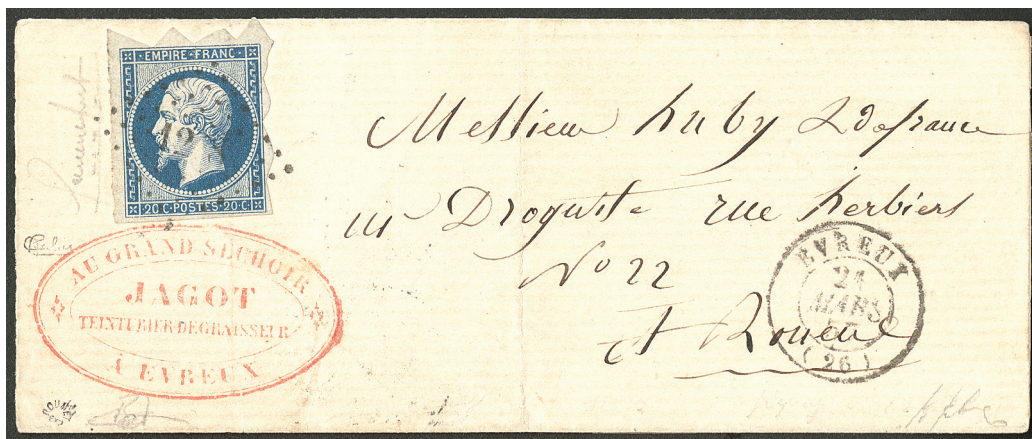 EMPIRE-FRANC·
20 C·POSTES·20·C·
AU GRAND SÉCHOIR
JAGOT
TEINTURIER-DÉGRAISSEUR
A EVREUX
Messieur huby Ldefrance
Droguiste rue herbiers
No 22
à Rouene
EVREUX
21
MARS
(26)